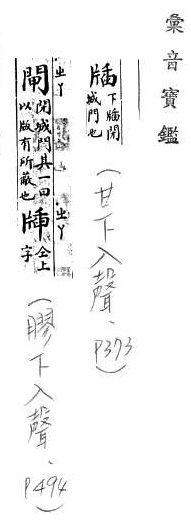 彙音寶鑑
牐 下牐閉
城門也
(甘下入聲、P373)
ㄓㄚ
閘 閉城門具一曰
以版有所蔽也
ㄓㄚ
牐 仝上
字
(膠下入聲、P494)